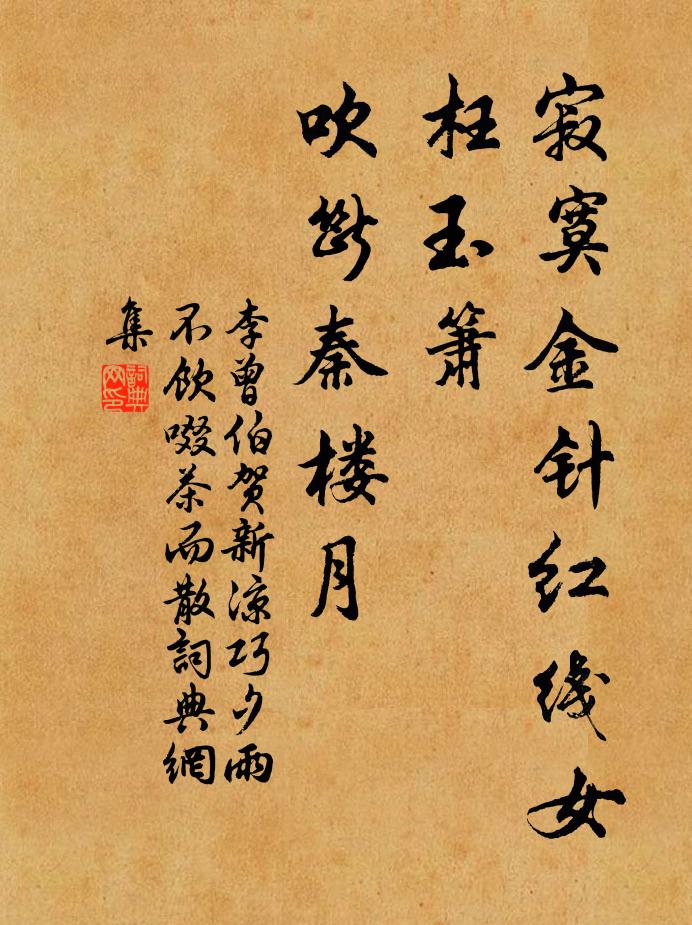 寂寞金针红线女
枉玉箫
吹断秦楼月
李曾伯贺新凉巧夕雨
不饮啜茶而散詞典網
集
詞典
网印